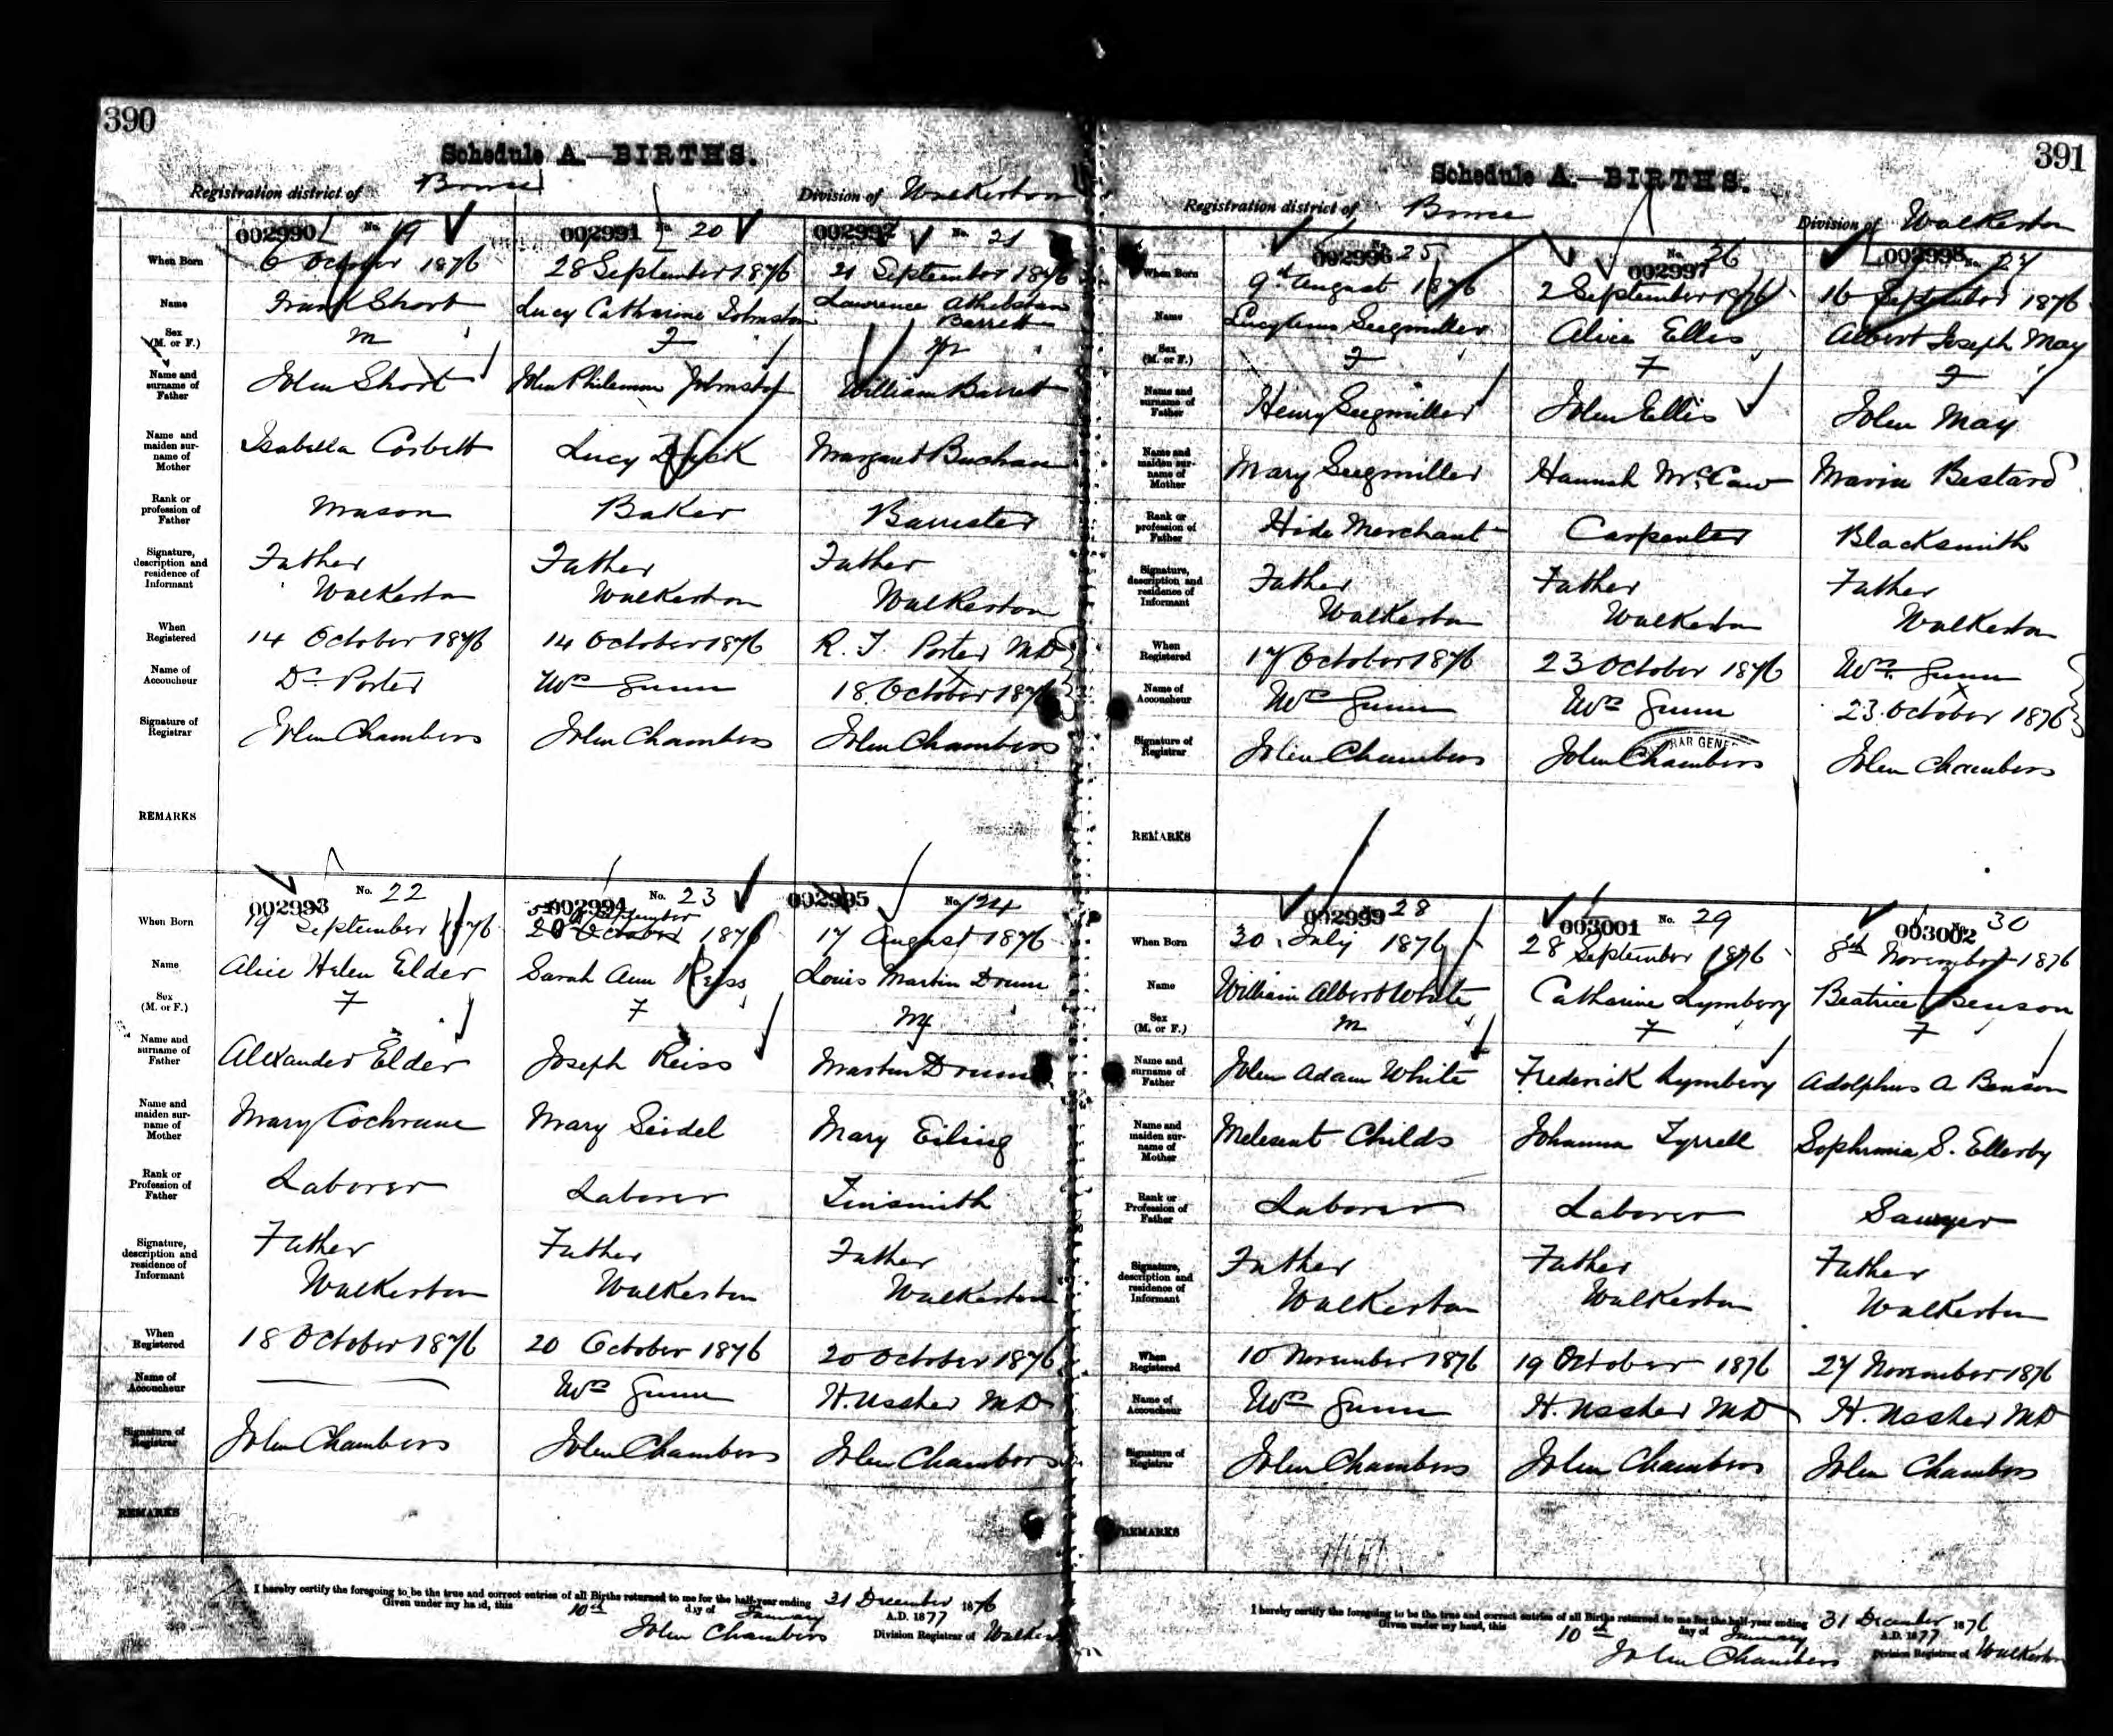 390
Schedule A.—BIRTHS.
Registration district of Bruce Division of Walkerton
002990 No. 19 002991 No. 20 002992 No. 21
When Born 6 October 1876 28 September 1876 21 September 1876
Name Frank Short Lucy Catharine Johnston Lawrence Athelstan Barrett
Sex (M. or F.) M F M
Name and surname of Father John Short John Philemon Johnston William Barrett
Name and maiden surname of Mother Isabella Corbett Lucy Margaret Buchan
Rank or profession of Father Mason Baker Barrister
Signature, description and residence of Informant Father Walkerton Father Walkerton Father Walkerton
When Registered 14 October 1876 14 October 1876 R. J. Porter MD
Name of Accoucheur Dr. Porter Wm Gunn 18 October 1876
Signature of Registrar John Chambers John Chambers John Chambers
REMARKS
002993 No. 22 002994 No. 23 002995 No. 24
When Born 19 September 1876 5th September 20 October 1876 17 August 1876
Name Alice Helen Elder Sarah Ann Reiss Louis Martin Drum
Sex (M. or F.) F F M
Name and surname of Father Alexander Elder Joseph Reiss Martin Drum
Name and maiden surname of Mother Mary Cochrane Mary Seidel Mary Eiling
Rank or Profession of Father Laborer Laborer Tinsmith
Signature, description and residence of Informant Father Walkerton Father Walkerton Father Walkerton
When Registered 18 October 1876 20 October 1876 20 October 1876
Name of Accoucheur Wm Gunn H. Ussher MD
Signature of Registrar John Chambers John Chambers John Chambers
REMARKS
I hereby certify the foregoing to be the true and correct entries of all Births returned to me for the half-year ending 31 December 1876
Given under my hand, this 10th day of January A.D. 1877
John Chambers Division Registrar of Walkerton
391
Schedule A.—BIRTHS.
Registration district of Bruce Division of Walkerton
002996 No. 25 002997 No. 26 002998 No. 27
When Born 9th August 1876 2 September 1876 16 September 1876
Name Lucy Ann Seegmiller Alice Ellis Albert Joseph May
Sex (M. or F.) F F F
Name and surname of Father Henry Seegmiller John Ellis John May
Name and maiden surname of Mother Mary Seegmiller Hannah McCaw Maria Bestard
Rank or profession of Father Hide Merchant Carpenter Blacksmith
Signature, description and residence of Informant Father Walkerton Father Walkerton Father Walkerton
When Registered 17 October 1876 23 October 1876 Wm. Gunn
Name of Accoucheur Wm Gunn Wm Gunn 23 October 1876
Signature of Registrar John Chambers John Chambers John Chambers
REMARKS
002999 28 003001 No. 29 003002 No. 30
When Born 30 July 1876 28 September 1876 8th November 1876
Name William Albert White Catharine Lymbery Beatrice Benson
Sex (M. or F.) M F F
Name and surname of Father John Adam White Frederick Lymbery Adolphus A Benson
Name and maiden surname of Mother Melesent Childs Johanna Tyrrell Sophronia S. Ellerby
Rank or Profession of Father Laborer Laborer Sawyer
Signature, description and residence of Informant Father Walkerton Father Walkerton Father Walkerton
When Registered 10 November 1876 19 October 1876 27 November 1876
Name of Accoucheur Wm Gunn H. Ussher MD H. Ussher MD
Signature of Registrar John Chambers John Chambers John Chambers
REMARKS
I hereby certify the foregoing to be the true and correct entries of all Births returned to me for the half-year ending 31 December 1876
Given under my hand, this 10th day of January A.D. 1877
John Chambers Division Registrar of Walkerton